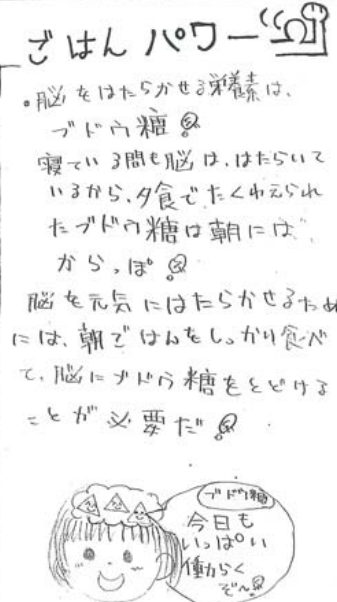 ごはんパワー
・脳をはたらかせる栄養素は、
ブドウ糖
寝ている間も脳は、はたらいて
いるから、夕食でたくわえられ
たブドウ糖は朝には、
からっぽ
脳を元気にはたらかせるため
には、朝ごはんをしっかり食べ
て、脳にブドウ糖をとどける
ことが必要だ
ブドウ糖
今日も
いっぱい
働らく
ぞ〜